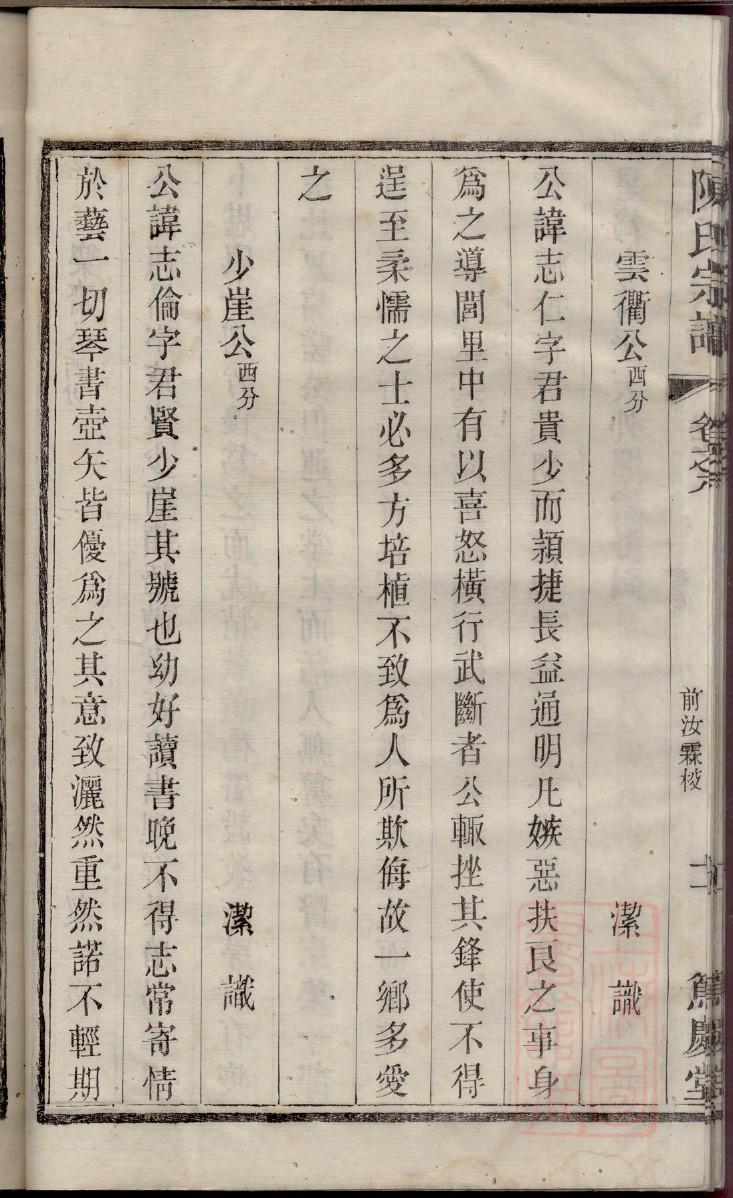 陳氏宗譜
卷之八
前汝霖梭
篤慶堂
雲衢公西分　潔識
公諱志仁字君貴少而穎捷長益通明凡嫉惡扶良之事身
爲之導閭里中有以喜怒橫行武斷者公輙挫其鋒使不得
逞至柔懦之士必多方培植不致爲人所欺侮故一鄉多愛
之
少崖公西分　潔識
公諱志倫字君賢少崖其號也幼好讀書晚不得志常寄情
於藝一切琴書壺矢皆優爲之其意致灑然重然諾不輕期